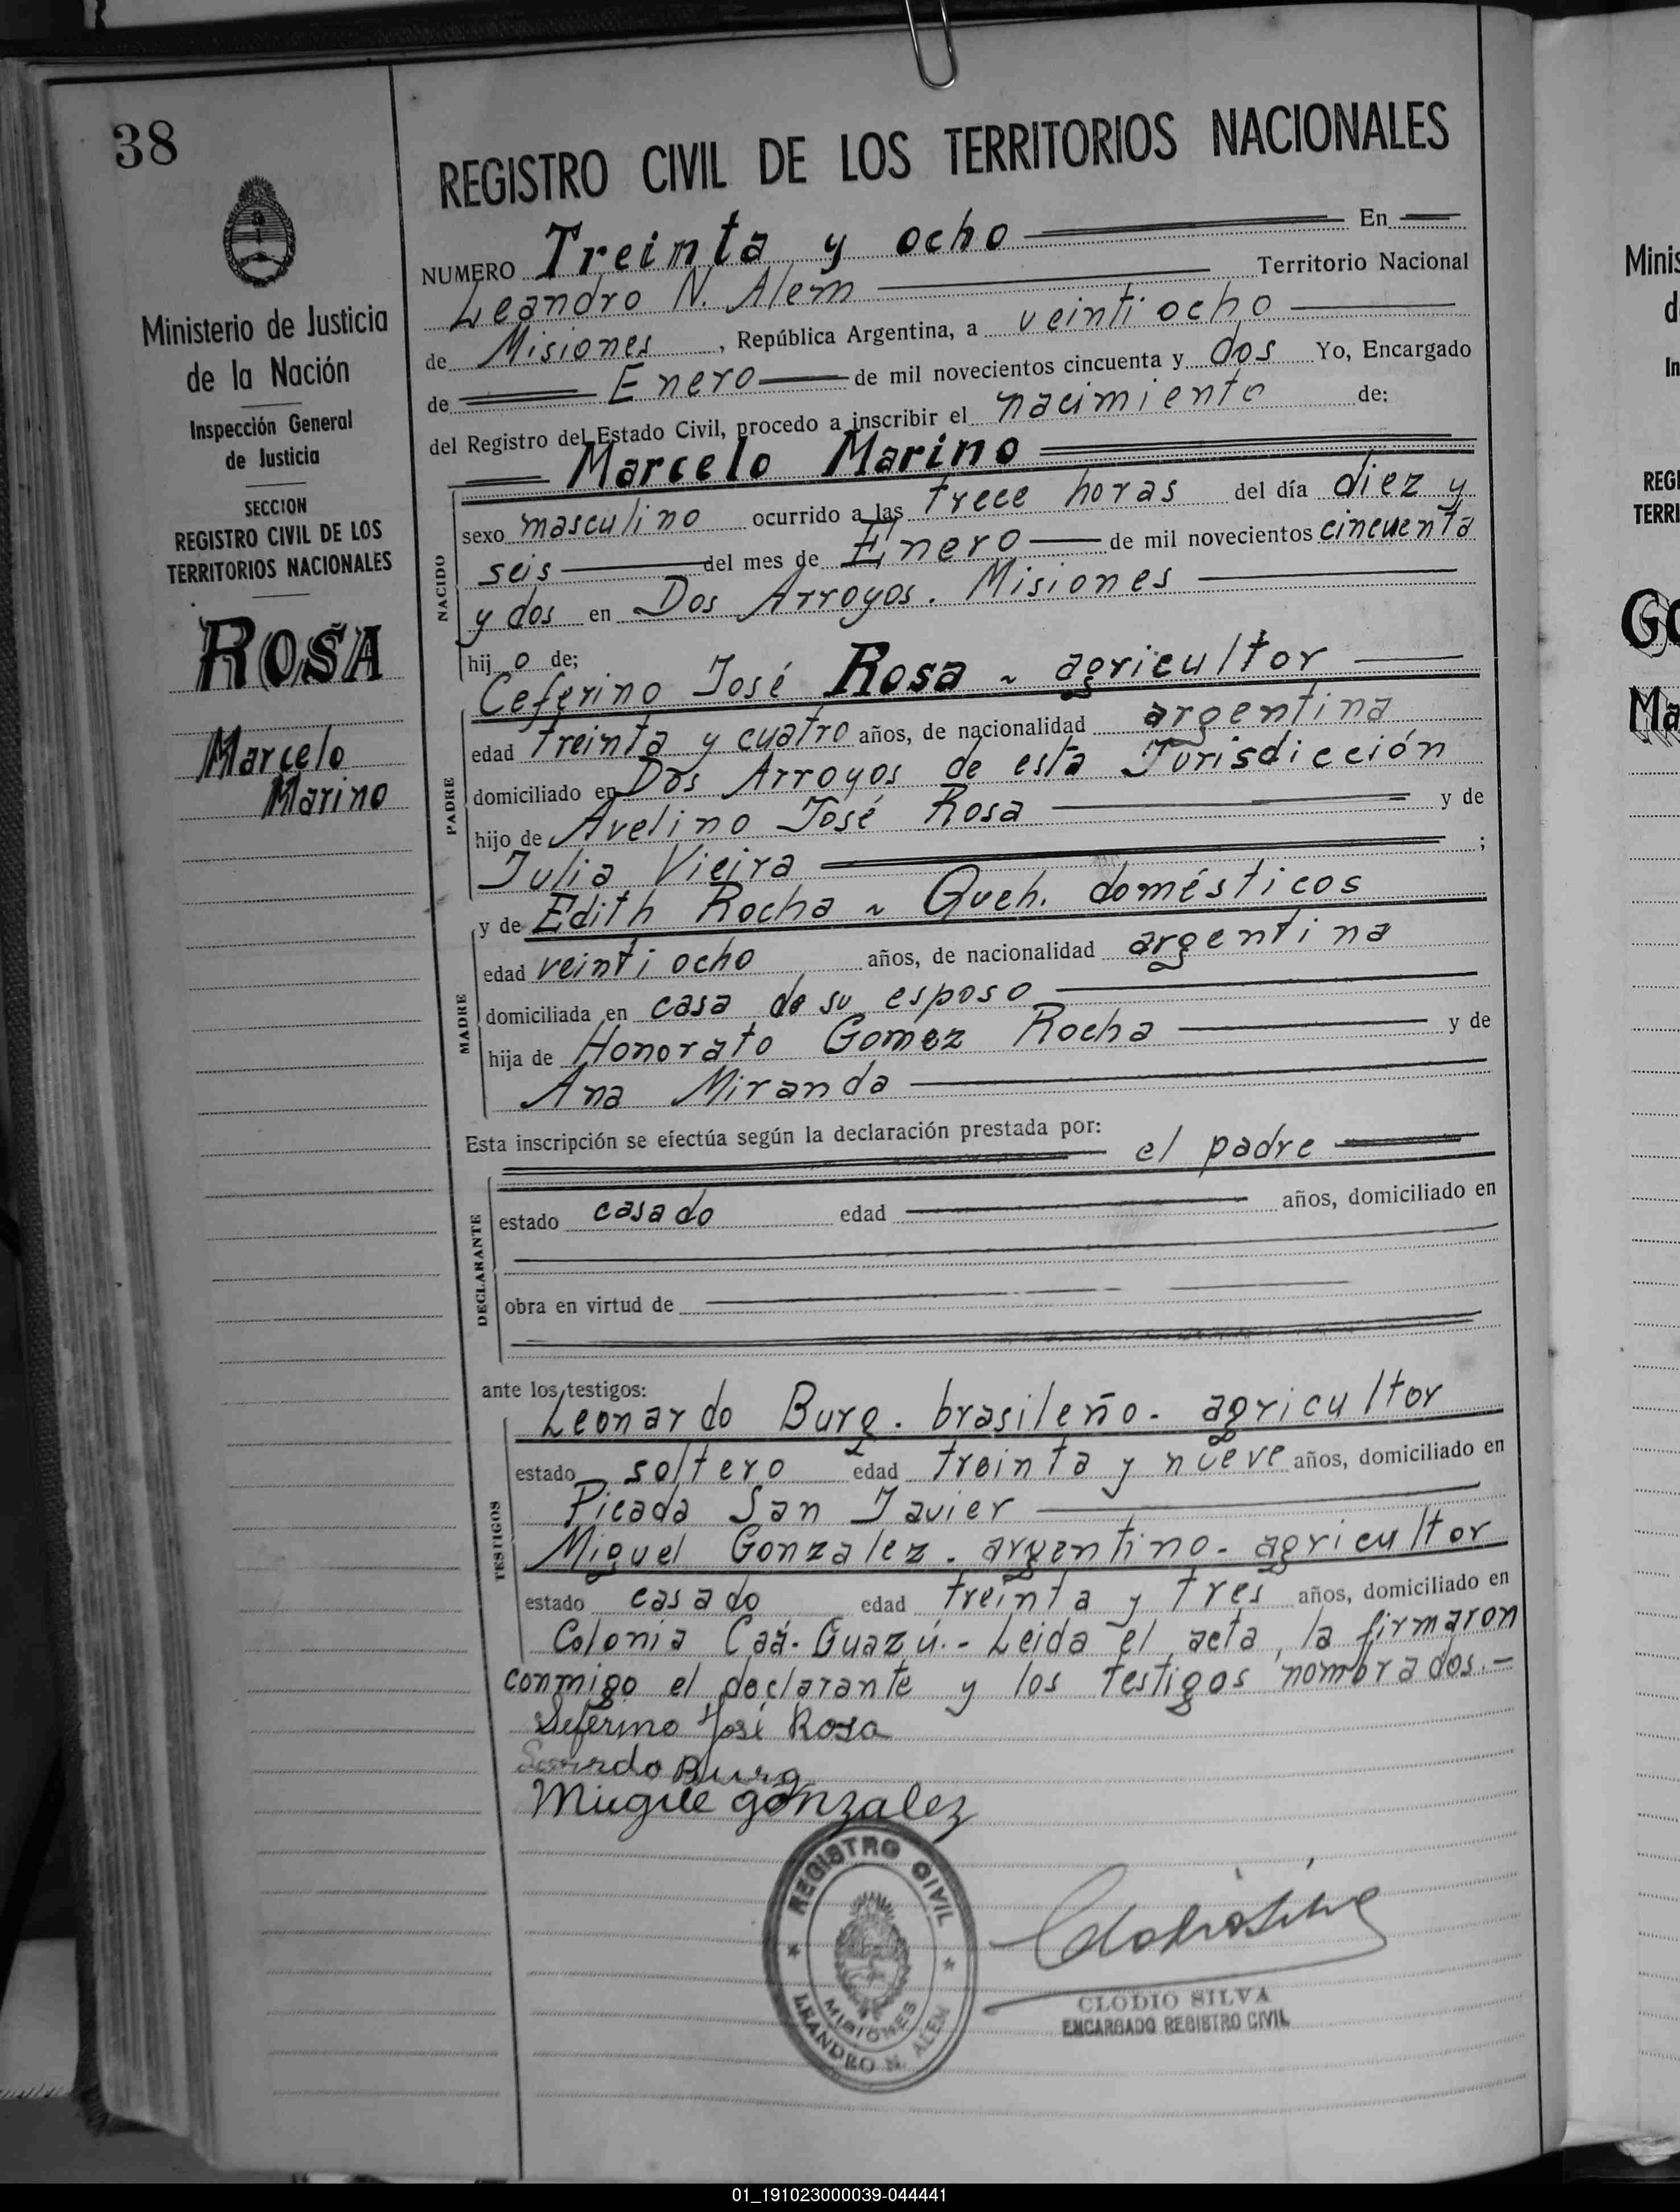 38
Ministerio de Justicia
de la Nación
Inspección General
de Justicia
SECCION
REGISTRO CIVIL DE LOS
TERRITORIOS NACIONALES
ROSA
Marcelo
Marino
REGISTRO CIVIL DE LOS TERRITORIOS NACIONALES
NUMERO Treinta y ocho En
Leandro N. Alem Territorio Nacional
de Misiones, República Argentina, a veintiocho
de Enero de mil novecientos cincuenta y dos Yo, Encargado
del Registro del Estado Civil, procedo a inscribir el nacimiento de:
Marcelo Marino
NACIDO
sexo masculino ocurrido a las trece horas del día diez y
seis del mes de Enero de mil novecientos cincuenta
y dos en Dos Arroyos. Misiones
hijo de;
PADRE
Ceferino José Rosa ~ agricultor
edad treinta y cuatro años, de nacionalidad argentina
domiciliado en Dos Arroyos de esta Jurisdicción
hijo de Avelino José Rosa y de
Julia Vieira ;
MADRE
y de Edith Rocha ~ Queh. domésticos
edad veintiocho años, de nacionalidad argentina
domiciliada en casa de su esposo
hija de Honorato Gomez Rocha y de
Ana Miranda
Esta inscripción se efectúa según la declaración prestada por:
el padre
DECLARANTE
estado casado edad años, domiciliado en
obra en virtud de
ante los testigos:
TESTIGOS
Leonardo Burg. brasileño. agricultor
estado soltero edad treinta y nueve años, domiciliado en
Picada San Javier
Miguel Gonzalez. argentino. agricultor
estado casado edad treinta y tres años, domiciliado en
Colonia Caá-Guazú.- Leida el acta, la firmaron
conmigo el declarante y los testigos nombrados.-
Seferino José Rosa
Burg
Migule gonzalez
REGISTRO CIVIL
MISIONES
LEANDRO N. ALEM
CLODIO SILVA
ENCARGADO REGISTRO CIVIL
Minis
d
In
REGI
TERRI
Go
Ma
01_191023000039-044441